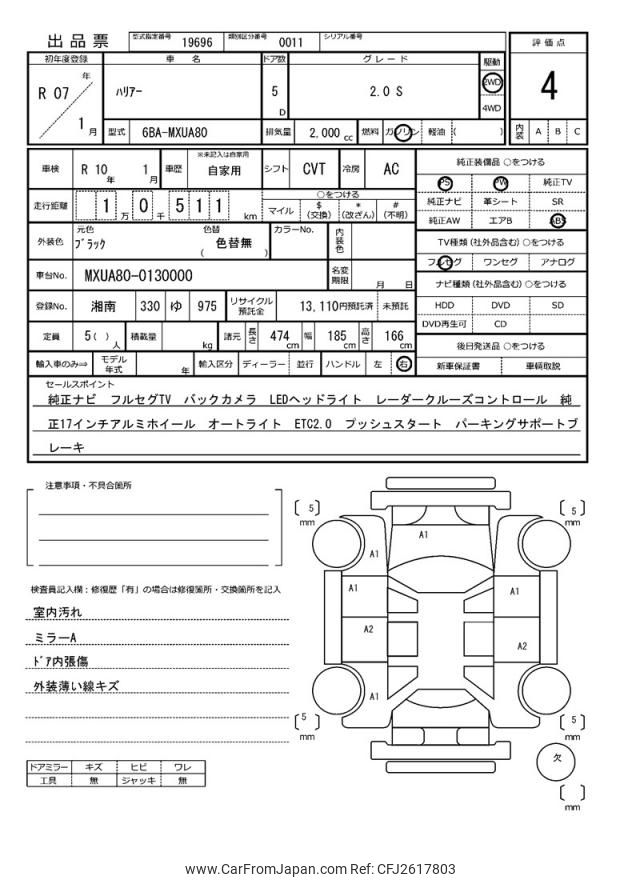 出品票 型式指定番号 19696 類別区分番号 0011 シリアル番号
評価点
4
内装 A B C
初年度登録 車名 ドア数 グレード 駆動
R 07 年 1 月 ﾊﾘｱｰ 5 D 2.0 S 2WD 4WD
型式 6BA-MXUA80 排気量 2,000 cc 燃料 ガソリン 軽油 ( )
車検 R 10 年 1 月 車歴 ※未記入は自家用 自家用 シフト CVT 冷房 AC
走行距離 1 万 0 千 5 1 1 km ○をつける
マイル $ (交換) * (改ざん) # (不明)
外装色 元色 ﾌﾞﾗｯｸ 色替 ( 色替無 ) カラーNo. 内装色
車台No. MXUA80-0130000 名変期限 月 日
登録No. 湘南 330 ゆ 975 リサイクル預託金 13,110円預託済 未預託
定員 5( ) 人 積載量 kg 諸元 長さ 474 cm 幅 185 cm 高さ 166 cm
輸入車のみ⇒ モデル年式 年 輸入区分 ディーラー 並行 ハンドル 左 右
純正装備品 ○をつける
PS PW 純正TV
純正ナビ 革シート SR
純正AW エアB ABS
TV種類(社外品含む)○をつける
フルセグ ワンセグ アナログ
ナビ種類(社外品含む)○をつける
HDD DVD SD
DVD再生可 CD
後日発送品 ○をつける
新車保証書 車輌取説
セールスポイント
純正ナビ フルセグTV バックカメラ LEDヘッドライト レーダークルーズコントロール 純
正17インチアルミホイール オートライト ETC2.0 プッシュスタート パーキングサポートブ
レーキ
注意事項・不具合箇所
検査員記入欄：修復歴「有」の場合は修復箇所・交換箇所を記入
室内汚れ
ミラーA
ﾄﾞｱ内張傷
外装薄い線キズ
ドアミラー キズ ヒビ ワレ
工具 無 ジャッキ 無
5 mm
5 mm
A1
A1
A1 A1
A2
A2
A1
5 mm
5 mm
欠
mm
www.CarFromJapan.com Ref: CFJ2617803